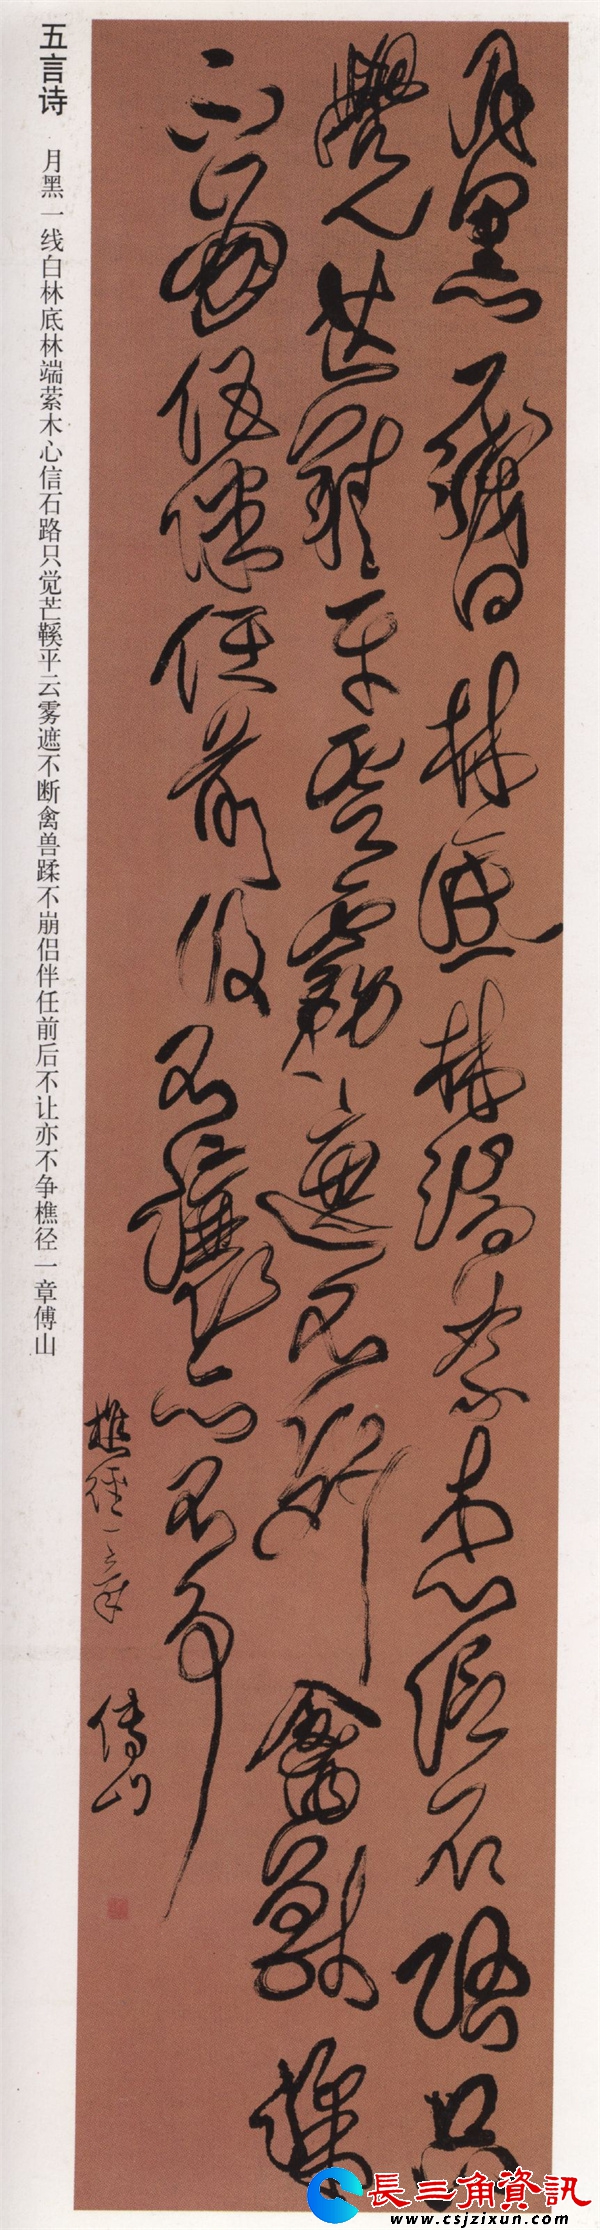 五言诗 月黑一线白林底林端萦木心信石路只觉芒鞵平云雾遮不断禽兽蹂不崩侣伴任前后不让亦不争樵径一章傅山
月黑一线白林底林端萦木心信石路只
觉芒鞵平云雾遮不断禽兽蹂
不崩侣伴任前后不让亦不争
樵径一章 傅山
長三角資訊
www.csjzixun.com